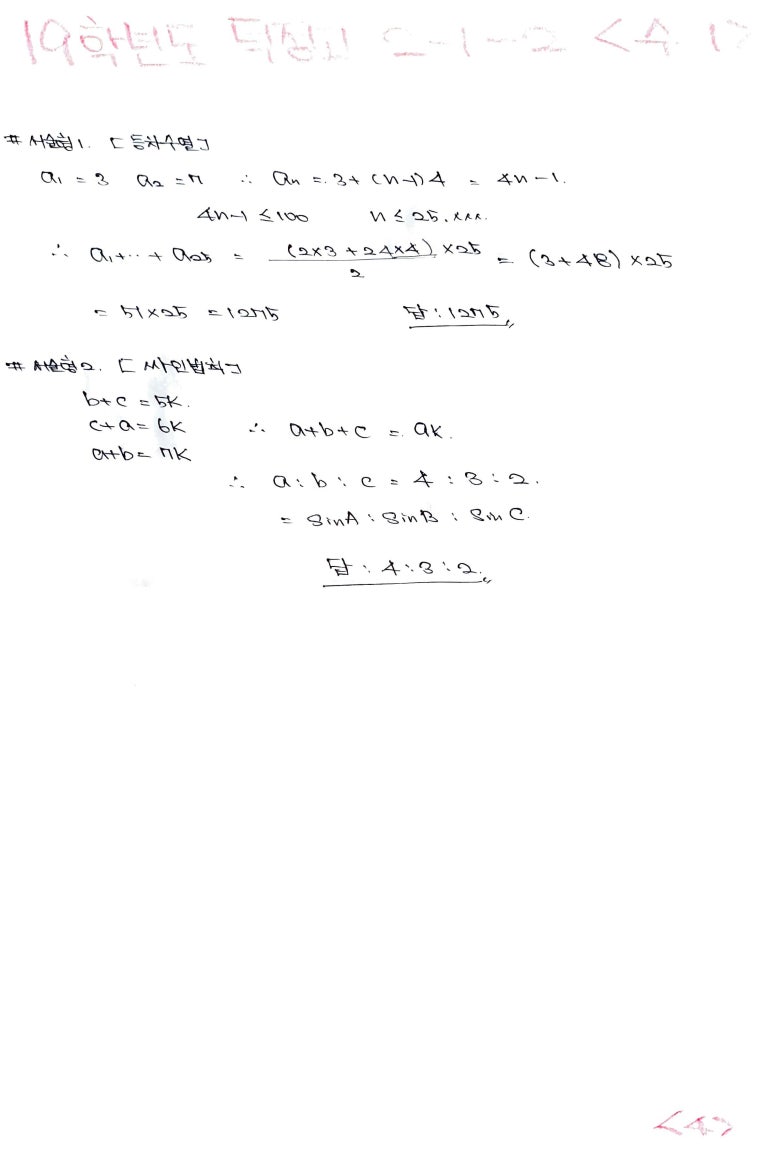 19학년도 덕성고 2-1-2 <수 1>
# 서술형1. [등차수열]
a₁ = 3 a₂ = 7 ∴ aₙ = 3+(n-1)4 = 4n-1.
4n-1 ≤100 n ≤ 25.×××.
∴ a₁+··+a₂₅ = (2×3+24×4)×25/2 = (3+48)×25
= 51×25 = 1275 답 : 1275〃
# 서술형2. [사인법칙]
b+c = 5K.
c+a = 6K ∴ a+b+c = 9K.
a+b = 7K
∴ a : b : c = 4 : 3 : 2.
= sinA : sinB : sin C.
답 : 4:3:2.〃
<4>